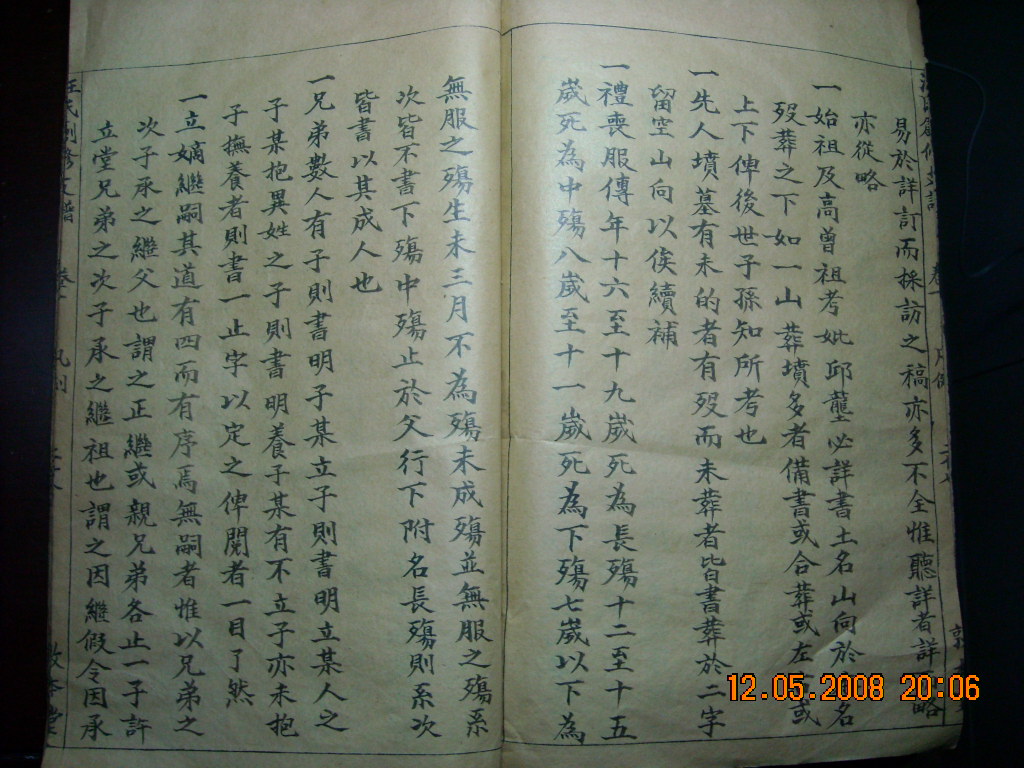 易於詳訂而採訪之稿亦多不全惟聽詳者詳略
亦從略
一始祖及高曾祖考妣邱壟必詳書土名山向於名
歿葬之下如一山葬墳多者備書或合葬或左或
上下俾後世子孫知所考也
一先人墳墓有未的者有歿而未葬者皆書葬於二字
留空山向以俟續補
一禮喪服傳年十六至十九歲死為長殤十二至十五
歲死為中殤八歲至十一歲死為下殤七歲以下為
無服之殤生未三月不為殤未成殤並無服之殤系
次皆不書下殤中殤止於父行下附名長殤則系次
皆書以其成人也
一兄弟數人有子則書明子某立子則書明立某人之
子某抱異姓之子則書明養子某有不立子亦未抱
子撫養者則書一止字以定之俾閱者一目了然
一立嫡繼嗣其道有四而有序焉無嗣者惟以兄弟之
次子承之繼父也謂之正繼或親兄弟各止一子許
立堂兄弟之次子承之繼祖也謂之因繼假令因承
汪氏創修支譜 卷一 凡例
敦本堂
12.05.2008 20:06